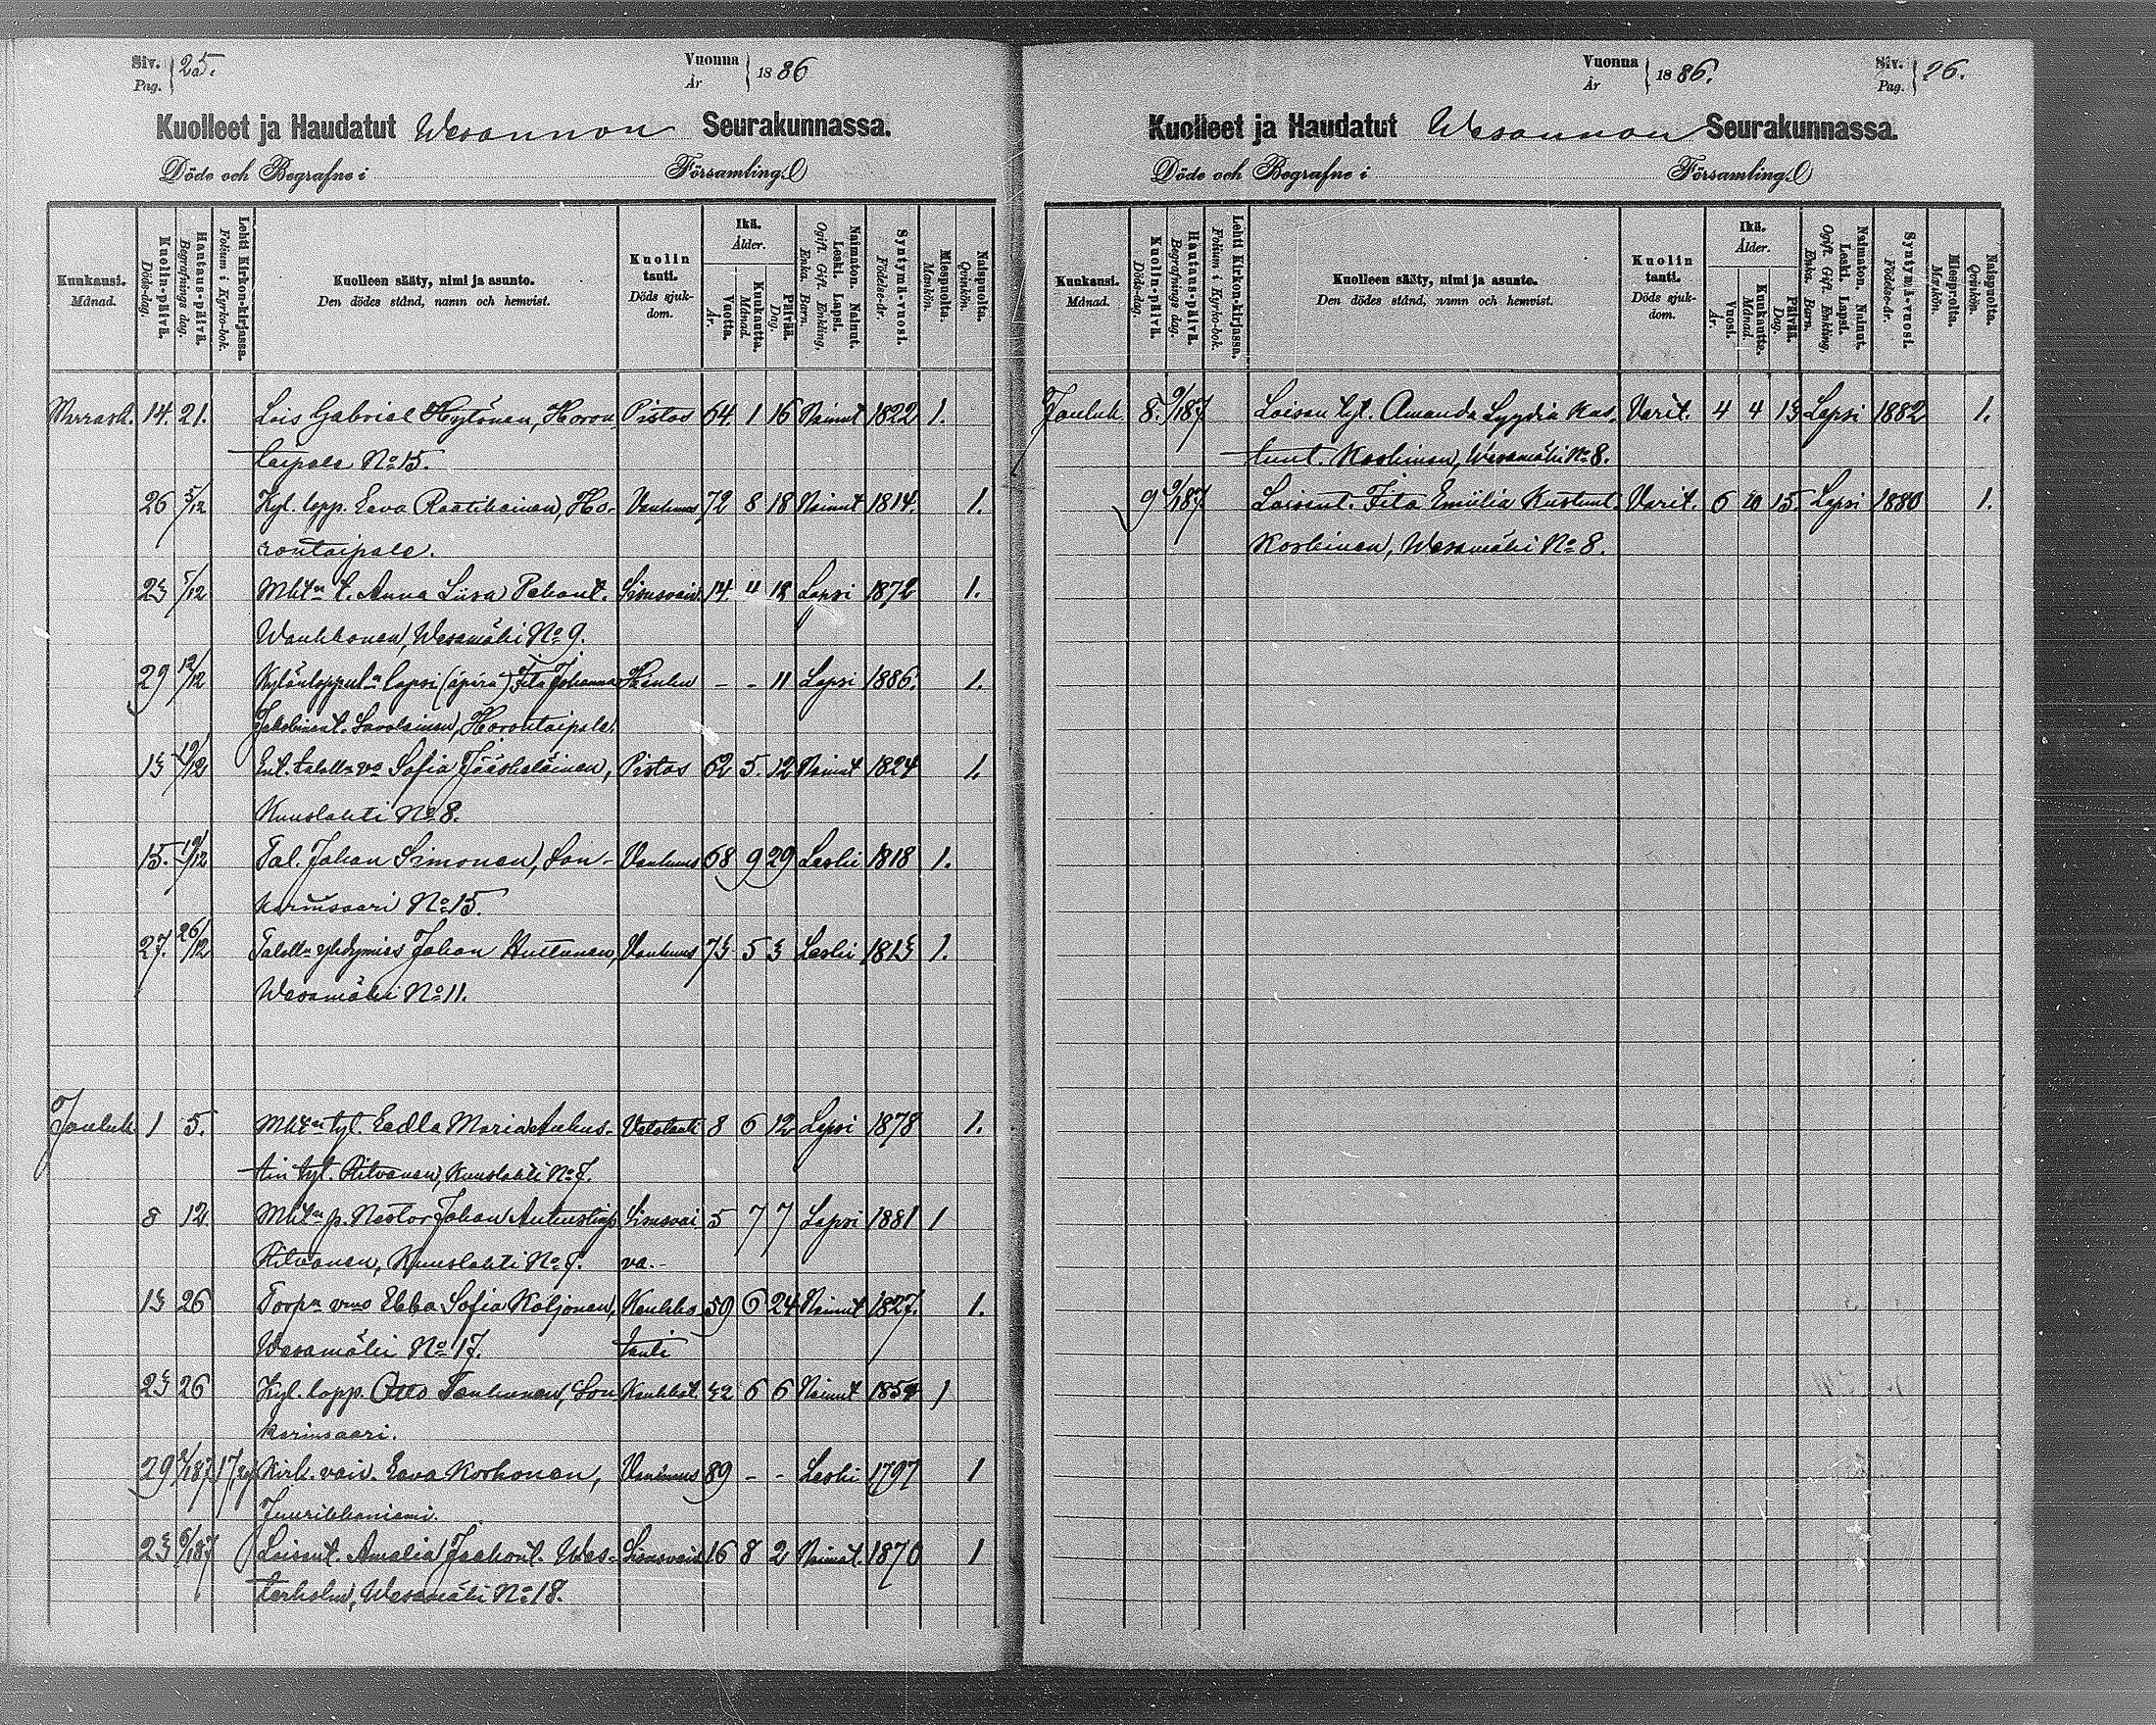 Siv. Pag. 25.
Vuonna År 1886
Kuolleet ja Haudatut Wesannon Seurakunnassa.
Döde och Begrafne i Församling.
Kuukausi. Månad.
Kuolin-päivä. Döds-dag.
Hautaus-päivä. Begrafnings dag.
Lehti Kirkon-kirjassa. Folium i Kyrko-bok.
Kuolleen sääty, nimi ja asunto. Den dödes stånd, namn och hemvist.
Kuolin tauti. Döds sjukdom.
Ikä. Ålder.
Vuotta. År.
Kuukautta. Månad.
Päivää. Dag.
Naimaton. Nainut. Leski. Lapsi. Ogift. Gift. Enkling, Enka. Barn.
Syntymä-vuosi. Födelse-år.
Miespuolta. Mankön.
Naispuolta. Qvinkön.
Marrask. 14. 21. Lois Gabriel Hytönen, Horon- Pistos 64. 1 16 Nainut 1822 1.
taipale No 15.
26 5/12 Kyl. lopp. Eeva Raatikainen, Ho- Vanhuus 72 8 18 Nainut 1814. 1.
rontaipale.
23 5/12 Mktn t. Anna Liisa Pekant. 14 4 18 Lapsi 1872 1.
Wauhkonen, Wesamäki No 9.
29 12/12 lapsi (äpärä) Fita Johanna - - 11 Lapsi 1886. 1.
Jakobint. Savolainen, Horontaipale.
13 19/12 Ent. talolln vo Sofia Jääskeläinen, Pistos 62 5. 12 Nainut 1824 1.
Kuuslahti No 8.
15. 19/12 Tal. Johan Simonen, Son- Vanhuus 68 9 29 Leski 1818 1.
karinsaari No 15.
27. 26/12 Talolln Johan Huttunen, Vanhuus 73 5 3 Leski 1813 1.
Wesamäki No 11.
Jouluk 1 5. Mktn tyt. Eedla Maria Aukus- 8 6 12 Lapsi 1878 1.
tin tyt. Ritvanen, Kuuslahti No 7.
8 12 Mktn p. Nestor Johan Aukustinp. Sisusvai 5 7 7 Lapsi 1881 1
Ritvanen, Kuuslahti No 7. va.-
13 26 Torpn vmo Ebba Sofia Koljonen, Keuhko 59 6 24 Nainut 1827. 1.
Wesamäki No 17. tauti
23 26 Kyl. lopp. Otto Tenhunen, Son Keuhkot. 32 6 6 Nainut 1854 1
karinsaari.
29 Kirk. vaiv. Eeva Korhonen, Vanhuus 89 - - Leski 1797 1
Juurikkaniemi.
23 6/187 Loisent. Amalia Jaakont. Wes- Sisusvaiv. 16 8 2 Naimat. 1870 1
terholm, Wesamäki No 18.
Vuonna År 1886.
Siv. Pag. 26.
Kuolleet ja Haudatut Wesannon Seurakunnassa.
Döde och Begrafne i Församling.
Kuukausi. Månad.
Kuolin-päivä. Döds-dag.
Hautaus-päivä. Begrafnings dag.
Lehti Kirkon-kirjassa. Folium i Kyrko-bok.
Kuolleen sääty, nimi ja asunto. Den dödes stånd, namn och hemvist.
Kuolin tauti. Döds sjukdom.
Ikä. Ålder.
Vuosi. År.
Kuukautta. Månad.
Päivää. Dag.
Naimaton. Nainut. Leski. Lapsi. Ogift. Gift. Enkling, Enka. Barn.
Syntymä-vuosi. Födelse-år.
Miespuolta. Mankön.
Naispuolta. Qvinkön.
Jouluk. 8. 9/187 Loisen tyt. Amanda Lyydia Kus- Verit. 4 4 13 Lapsi 1882 1.
tunt. Koskinen, Wesamäki No 8.
9 9/187 Loisent. Fita Emiilia Kustunt. Verit. 6 10 15. Lapsi 1880 1.
Koskinen, Wesamäki No 8.